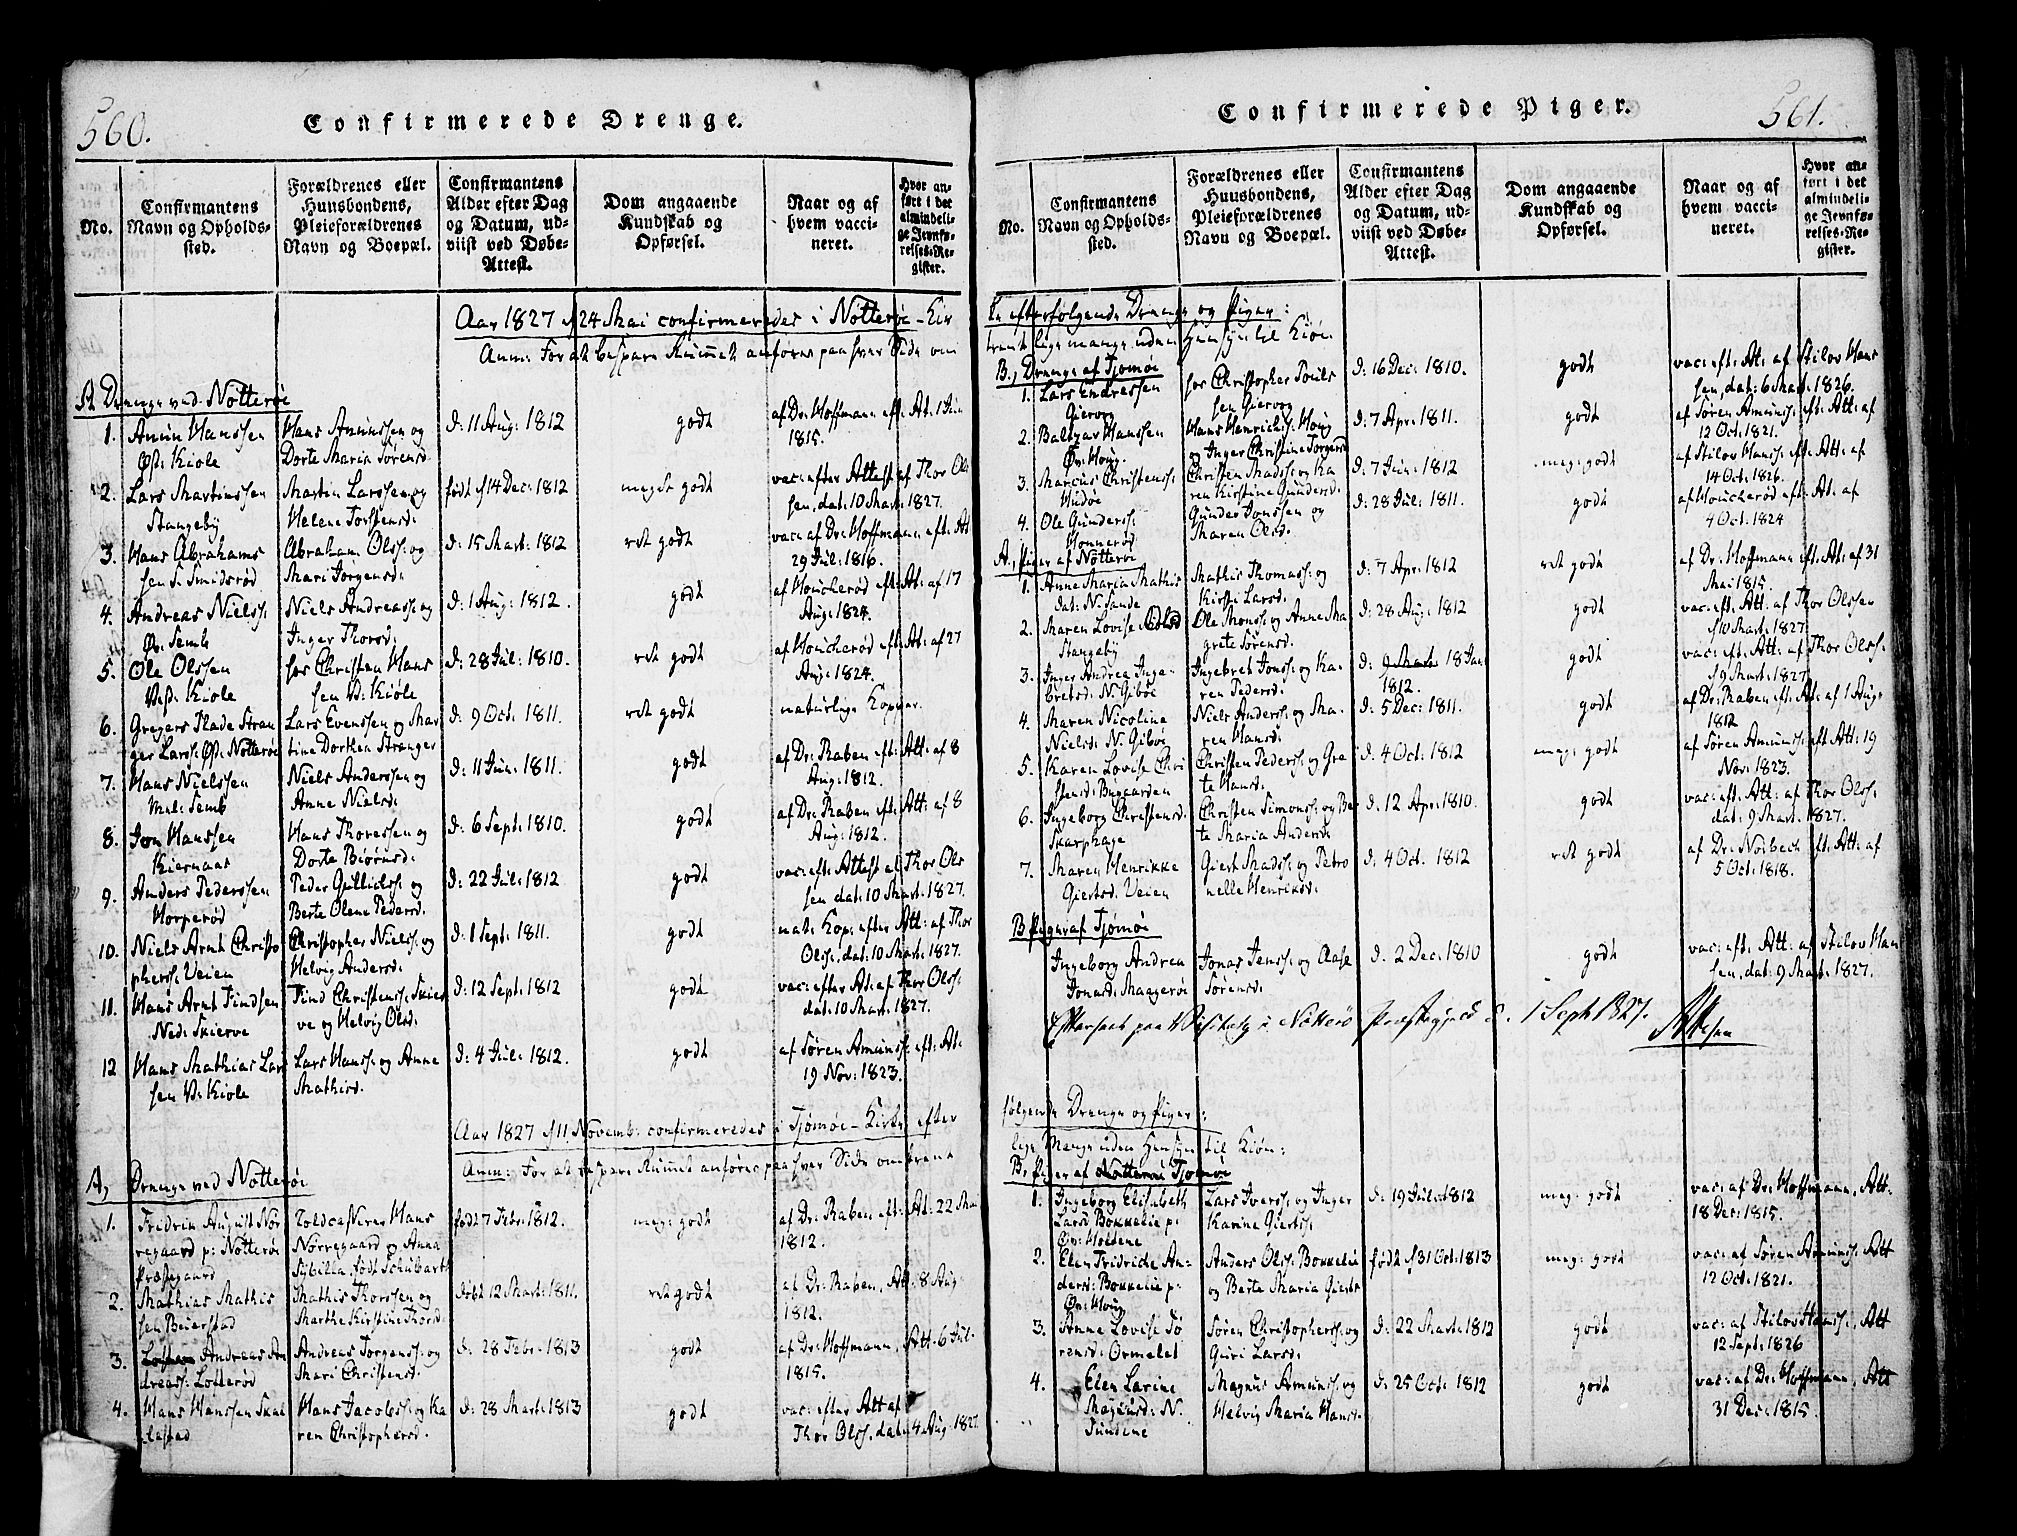 560.
Confirmerede Drenge.
No.
Confirmantens
Navn og Opholds-
sted.
Forældrenes eller
Huusbondens,
Pleieforældrenes
Navn og Boepæl.
Confirmantens
Alder efter Dag
og Datum, ud-
viist ved Døbe-
Attest.
Dom angaaende
Kundskab og
Opførsel.
Naar og af
hvem vacci-
neret.
Hvor an-
ført i det
almindeli-
ge Jevnfø-
relses-Re-
gister.
Aar 1827 d 24 Mai confirmeredes i Nøtterøe-Kir
Anm: For at bespare Rummet anføres paa hver Side om
A Drenge ved Nøtterøe
1. Amun Hanssen
Øst: Kiole
Hans Amunssen og
Dorte Maria Sørensd.
d: 11 Aug: 1812
godt
af Dr: Hoffmann eft: At: 1 Jun
1815.
2. Lars Martinssen
Stangeby
Martin Larssen og
Helene Torstensd:
født d 14 Dec: 1812
meget godt
vac: efter Attest af Thor Ols
sen, dat: 10 Mart: 1827.
3. Hans Abrahams
sen S. Smidsrød
Abraham Olss: og
Mari Jørgensd.
d: 15 Mart: 1812
ret godt
vac: af Dr: Hoffmann eft: At
29 Jul: 1816.
4. Andreas Nielss:
Øv: Semb
Niels Andreass: og
Inger Thorsd:
d: 1 Aug: 1812.
godt
af Houcherød eft: At: af 17
Aug: 1824.
5. Ole Olssen
Vest: Kiole
hos Christen Hans
sen V: Kiøle
d: 28 Jul: 1810.
ret godt
af Houcherød eft: At: af 27
Aug: 1824.
6. Gregers Plade Stran
ger Larss: Øst: Nøtterøe
Lars Evenssen og Mar
tine Dorthea Stranger
d: 9 Oct: 1811.
ret godt
naturlige Kopper.
7. Hans Nielssen
Mel: Semb
Niels Anderssen og
Anne Nielsd:
d: 11 Jun: 1811.
godt
af Dr: Raben eft: Att: af 8
Aug: 1812.
8. Jon Hanssen
Kiernaas
Hans Thoressen og
Dorte Biørnsd:
d: 6 Sept: 1810.
godt
af Dr: Raben eft: Att: af 8
Aug: 1812.
9. Anders Pederssen
Horperød
Peder Gulliclss: og
Berte Olene Pedersd.
d: 22 Jul: 1812
godt
vac: eft: Attest af Thor Ols
sen dat: 10 Mart: 1827.
10. Niels Arnt Christo
pherss: Veien
Christopher Nielss: og
Helvig Andersd:
d: 1 Sept: 1811.
godt
nat: Kop: efter Att: af Thor
Olss: dat: 10 Mart: 1827.
11. Hans Arnt Findsen
Ned: Skierve
Find Christenss: Skier
ve og Helvig Olsd:
d: 12 Sept: 1812
godt
vac: efter At: af Thor Olss:
dat: 10 Mart: 1827.
12 Hans Mathias Lars
sen V: Kiole
Lars Hanss: og Anne
Mathisd.
d: 4 Jul: 1812.
godt
af Søren Amunss: eft: At:
19 Nov: 1823.
Aar 1827 d 11 Novemb: confirmeredes i Tjømøe-Kirke efter
Anm: For at bespare Rummet anføres paa hver Side omtrent
A, Drenge ved Nøtterøe
1. Fredrik August Nør
regaard p: Nøtterøe
Præstegaard
Toldcasserer Hans
Nørregaard og Anna
Sybilla født Schubart
født 7 Febr: 1812.
meg: godt
af Dr: Raben eft: At: 22 Mai
1812.
2. Mathias Mathis
sen Beierstad
Mathis Thorssen og
Marthe Kirstine Thorsd:
døbt 12 Mart: 1811.
ret godt
af Dr: Raben, Att: 8 Aug:
1812.
3. Andreas An
dreass: Lofterød
Andreas Jørgenss: og
Mari Christensd:
d: 28 Febr: 1813
godt
af Dr: Hoffmann, Att: 6 Jul:
1815.
4. Hans Hanssen Skal
lestad
Hans Jacobss: og Ka
ren Christophersd.
d: 28 Mart: 1813
godt
vac: efter Att af
Thor Olss: dat: 4 Aug: 1827.
561.
Confirmerede Piger.
No.
Confirmantens
Navn og Opholds-
sted.
Forældrenes eller
Huusbondens,
Pleieforældrenes
Navn og Boepæl.
Confirmantens
Alder efter Dag
og Datum, ud-
viist ved Døbe-
Attest.
Dom angaaende
Kundskab og
Opførsel.
Naar og af
hvem vacci-
neret.
Hvor an-
ført i det
almindeli-
ge Jevnfø-
relses-Re-
gister.
ke efterfølgende Drenge og Piger:
trent lige mange uden Hensyn til Kiøn.
B, Drenge af Tjømøe
1. Lars Endressen
Gierøg
hos Christopher Pouls
sen Gierøg
d: 16 Dec: 1810.
godt
vac: eft: At: af Stilov Hans
sen, dat: 6 Mart: 1826.
2. Baltzar Hanssen
Øv: Houg
Hans Henrichs: Houg
og Inger Christine Torgersd
d: 7 Apr: 1811.
godt
af Søren Amunss: eft: Att: af
12 Oct: 1821.
3. Marcus Christenss:
Hudøe
Christen Madss: og Ka
ren Kirstine Gundersd:
d: 7 Jun: 1812
meg: godt
af Stilov Hanss: eft: Att: af
14 Oct: 1826.
4. Ole Gunderss:
Honnerød
Gunder Jonssen og
Maren Olsd:
d: 28 Jul: 1811.
godt
af Houcherød eft: At: af
4 Oct: 1824
A, Piger af Nøtterøe
1. Anne Maria Mathis
dat: N. Sande
Mathis Thomass: og
Kirsti Larsd.
d: 7 Apr: 1812
ret godt
af Dr: Hoffmann eft: At: af 31
Mai 1815.
2. Maren Lovise Olsd
Stangeby
Ole Monss: og Anne Ma
grete Sørensd:
d: 28 Aug: 1812
godt
vac: eft: Att: af Thor Olssen
d 10 Mart: 1827
3. Inger Andrea Inge-
bretsd: N. Gibøe
Ingebret Jonss: og Ka-
ren Pedersd:
d: 9 Mart: 18 Jan:
1812.
godt
vac: eft: Att: af Thor Olss:
d 9 Mart: 1827
4. Maren Nicoline
Nielsd: N. Gibøe
Niels Anderss: og Ma-
ren Hansd:
d: 5 Dec: 1811.
godt
af Dr: Raben eft: At: af 1 Aug:
1812
5. Karen Lovise Chri
stensd: Buggaarden
Christen Pederss: og Gre
te Hansd:
d: 4 Oct: 1812
meg: godt
af Søren Amunss: eft Att: 19
Nov: 1823.
6. Ingeborg Christensd.
Skarphage
Christen Simonss: og Be
te Maria Andersd:
d: 12 Apr: 1810.
godt
vac: eft: At: af Thor Olss:
dat: 9 Mart: 1827.
7. Maren Henrikke
Giertsd: Veien
Giert Madss: og Petro
nelle Henriksd:
d: 4 Oct. 1812
ret godt
af Dr: Norbech eft: Att: af
5 Oct: 1818.
B Piger af Tjømøe
Ingeborg Andrea
Jonasd: Maagerøe
Jonas Jenss: og Aase
Sørensd:
d. 2 Dec: 1810
godt
vac: eft: Att: af Stilov Han
sen, dat: 9 Mart: 1827.
Efterseet paa Visitatz i Nøtterø Præstegjeld d. 1 Sept 1827.
følgende Drenge og Piger:
lige Mange uden Hensyn til Kiøn:
B, Piger af Nøtterøe Tjømøe
1. Ingeborg Elisabeth
Larsd Bokkelie p:
Øv: Holtene
Lars Iverss: og Inger
Karine Giertss:
d: 19 Jul: 1812
meg: godt
vac: af Dr: Hoffmann, Att:
18 Dec: 1815.
2. Elen Fridride An-
dersd: Bokkelie p:
Øv: Houg
Anders Olss: Bokkelie
og Berte Maria Giertsd
født d 31 Oct: 1813
meg: godt
vac: af Søren Amunss: Att
12 Oct: 1821.
3. Anne Lovise Sø
rensd: Ormelet
Søren Christopherss: og
Guri Larsd:
d: 22 Mart: 1812
godt
vac: af Stilov Hanss:, Att
12 Sept: 1826
4. Elen Larine
Magnusd: N.
Sundene
Magnus Amunss: og
Helvig Maria Hansd.
d: 25 Oct: 1812
godt
vac: af Dr: Hoffmann, Att
31 Dec: 1815.